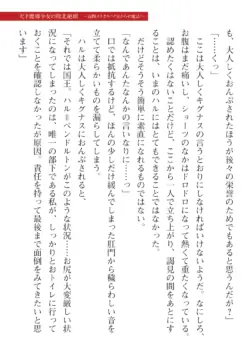 も、大人しくおんぶされたほうが後々の栄誉のためでもあると思うんだが」
「……くっ」
　ここは大人しくキグナスの言うとおりにしなければいけないようだ。なにしろ、
お腹はまだ痛いし、ショーツのなかはドロドロになって熱くて重たくなっている。
　認めたくはないことだけど、ここから一人で立ち上がり、謁見の間をあとにす
ることは、いまのハルにはとてもできることではなかった。
だけどそう簡単に素直になれるものでもなく、
「なんであんたなんかの言いなりに……っ」
　口では抵抗するけど、ほんの少しだけ緩んでしまった肛門から穢らわしい音を
漏らしてしまう。
　ハルは大人しくキグナスにおんぶされると、
「それでは国王。ハル＝ベンドルトンがこのような状況……お尻が大変厳しい状
況になってしまったのは、唯一の部下である私が、しっかりとおトイレに行って
おくことを確認しなかったが原因。責任を持って最後まで面倒をみてきたいと思
います」